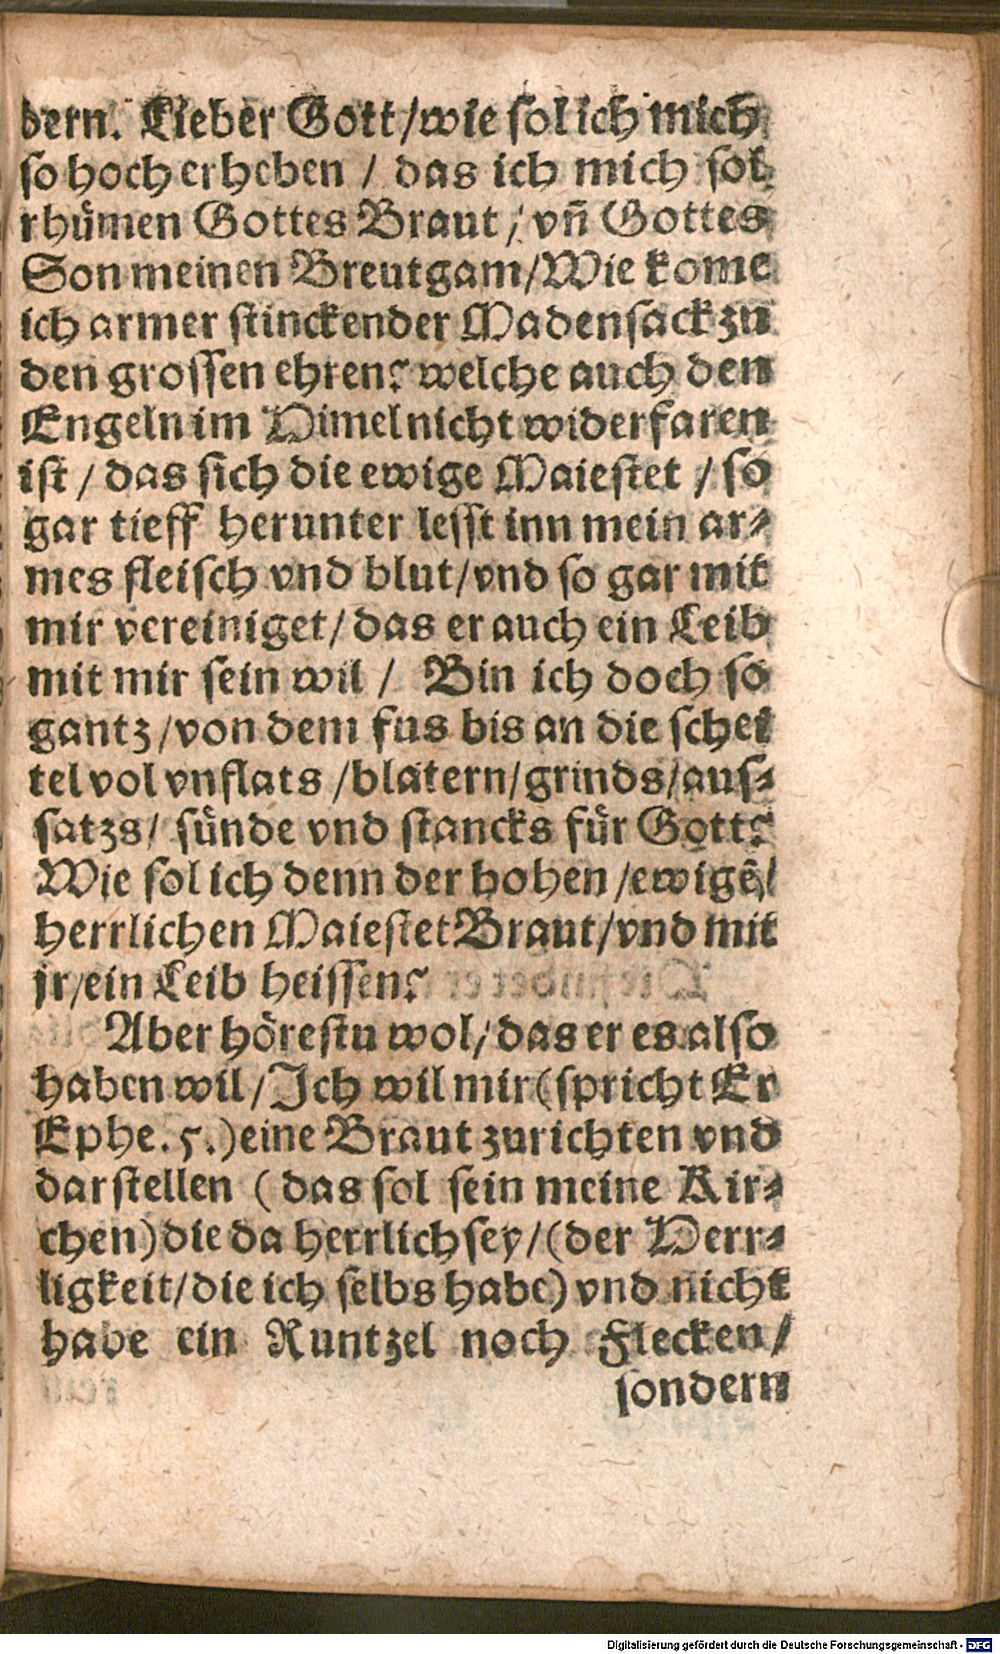 dern. Lieber Gott/wie sol ich mich
so hoch erheben / das ich mich sol
rhümen Gottes Braut / vñ Gottes
Son meinen Breutgam/Wie kome
ich armer stinckender Madensack zu
den grossen ehren? welche auch den
Engeln im Himel nicht widerfaren
ist / das sich die ewige Maiestet / so
gar tieff herunter lesst inn mein ar⸗
mes fleisch vnd blut/vnd so gar mit
mir vereiniget/das er auch ein Leib
mit mir sein wil / Bin ich doch so
gantz/von dem fus bis an die schei
tel vol vnflats /blatern/grinds/aus⸗
satzs/ sünde vnd stancks für Gott?
Wie sol ich denn der hohen /ewigẽ/
herrlichen Maiestet Braut/vnd mit
jr/ein Leib heissen?
Aber hörestu wol/das er es also
haben wil/Ich wil mir(spricht Er
Ephe. 5.)eine Braut zurichten vnd
darstellen (das sol sein meine Kir⸗
chen)die da herrlich sey/(der Herr⸗
ligkeit/die ich selbs habe) vnd nicht
habe ein Runtzel noch Flecken/
sondern
Digitalisierung gefördert durch die Deutsche Forschungsgemeinschaft - DFG